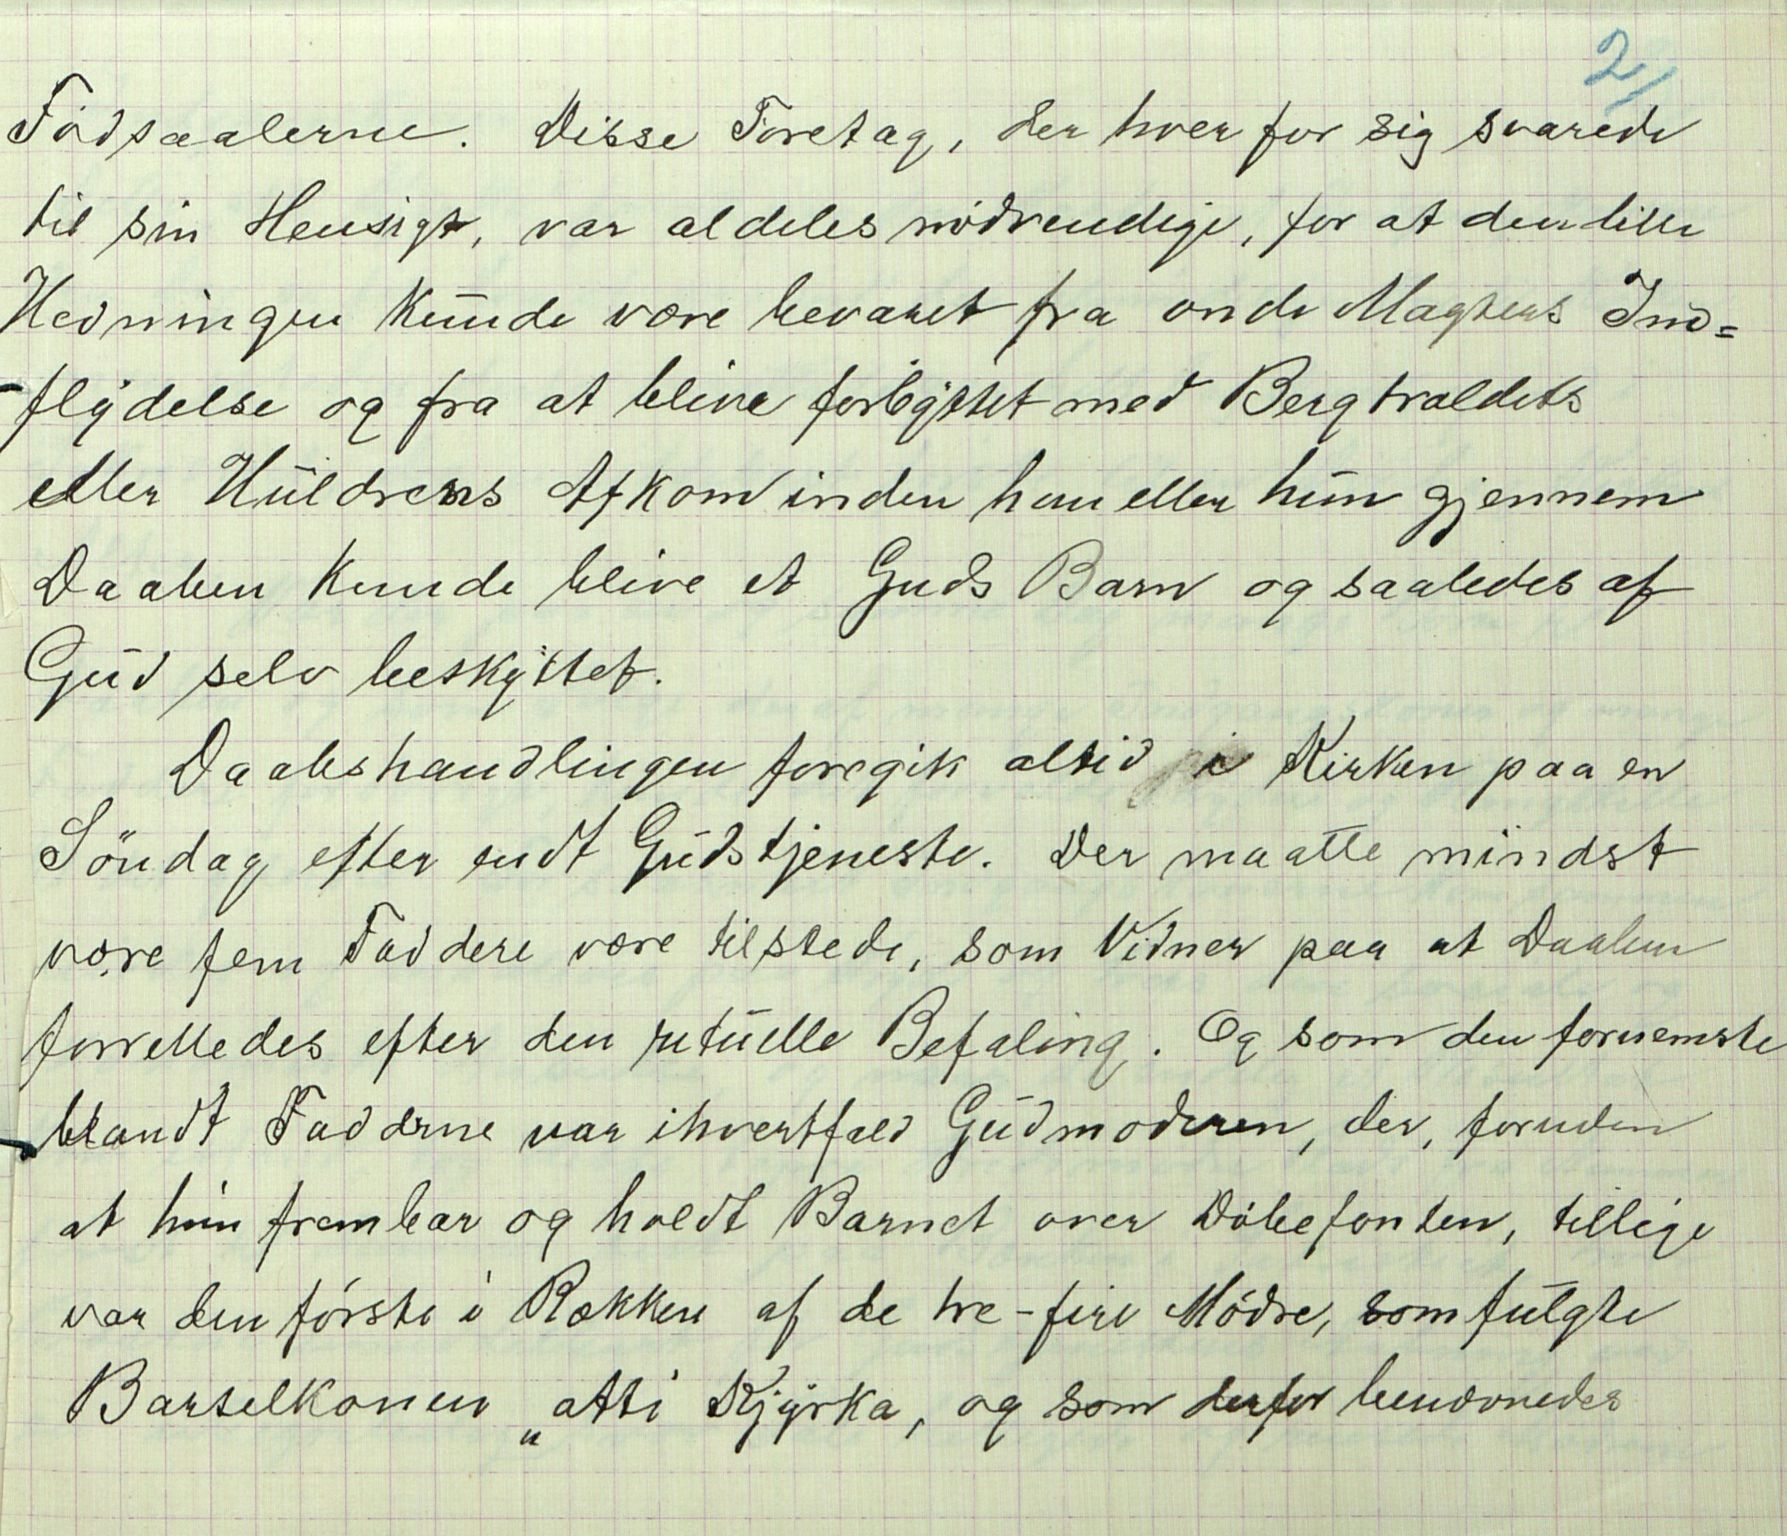 2/
Fódsaalerne. Disse Foretag, der hver for sig svarede
til sin Hensigt, var aldeles nódvendige, for at den lille
Hedningen kunde være bevaret fra onde Magters Ind=
flydelse og fra at blive forbyttet med Bergtroldets
eller Huldrens Afkom inden han eller hun gjennem
Daaben kunde blive et Guds Barn og saaledes af
Gud selv beskyttet.
Daabshandlingen foregik altid i Kirken paa en
Söndag efter endt Gudstjeneste. Der maatte mindst
være fem Faddere være tilstede, som Vidner paa at Daaben
forrettedes efter den rituelle Befaling. Og som den fornemste
blandt Fadderne var ihvertfald Gudmoderen, der, foruden
at hun frembar og holdt Barnet over Dóbefonten, tillige
var den fórste i Rækken af de tre-fire Módre, som fulgte
Barselkonen „atti Kjyrka, og som derfor benævnedes